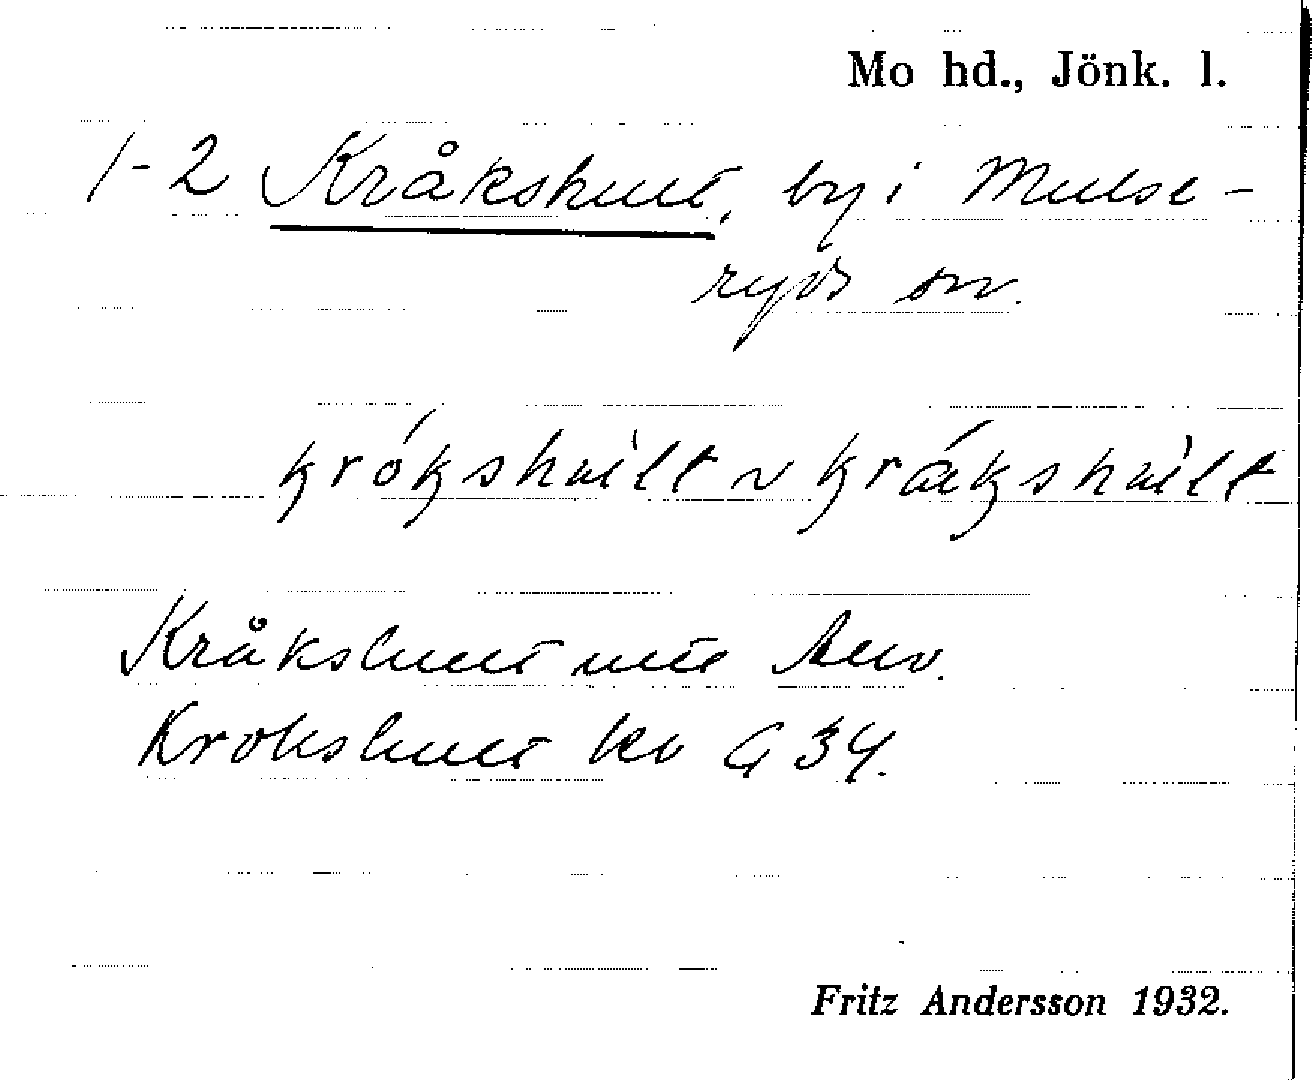 Mo hd., Jönk. l.
1-2 Kråkshult, by i Mulse-
ryds sn.
krókshult ~ krákshult
Kråkshult
Krokshult kb G 34.
Fritz Andersson 1932.